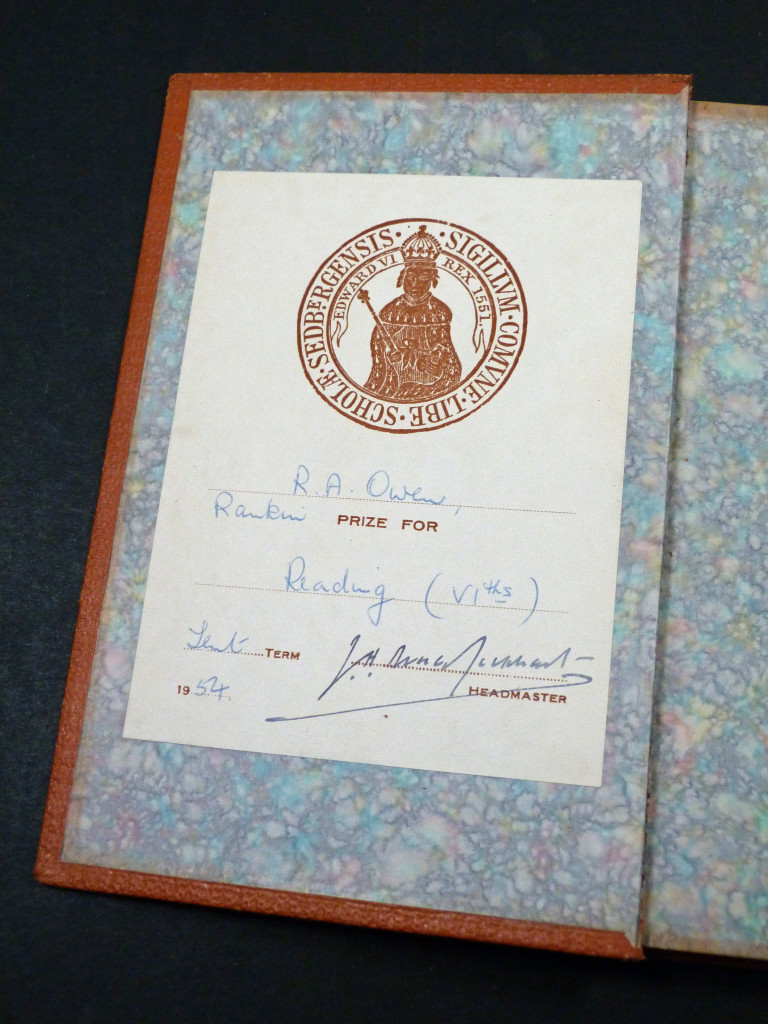 SIGILLVM · COMVNE · LIBE · SCHOLÆ · SEDBERGENSIS ·
EDWARD VI REX 1551.
R. A. Owen,
Rankin PRIZE FOR
Reading (VIths)
Lent TERM J.H. Bruce Lockhart
1954. HEADMASTER